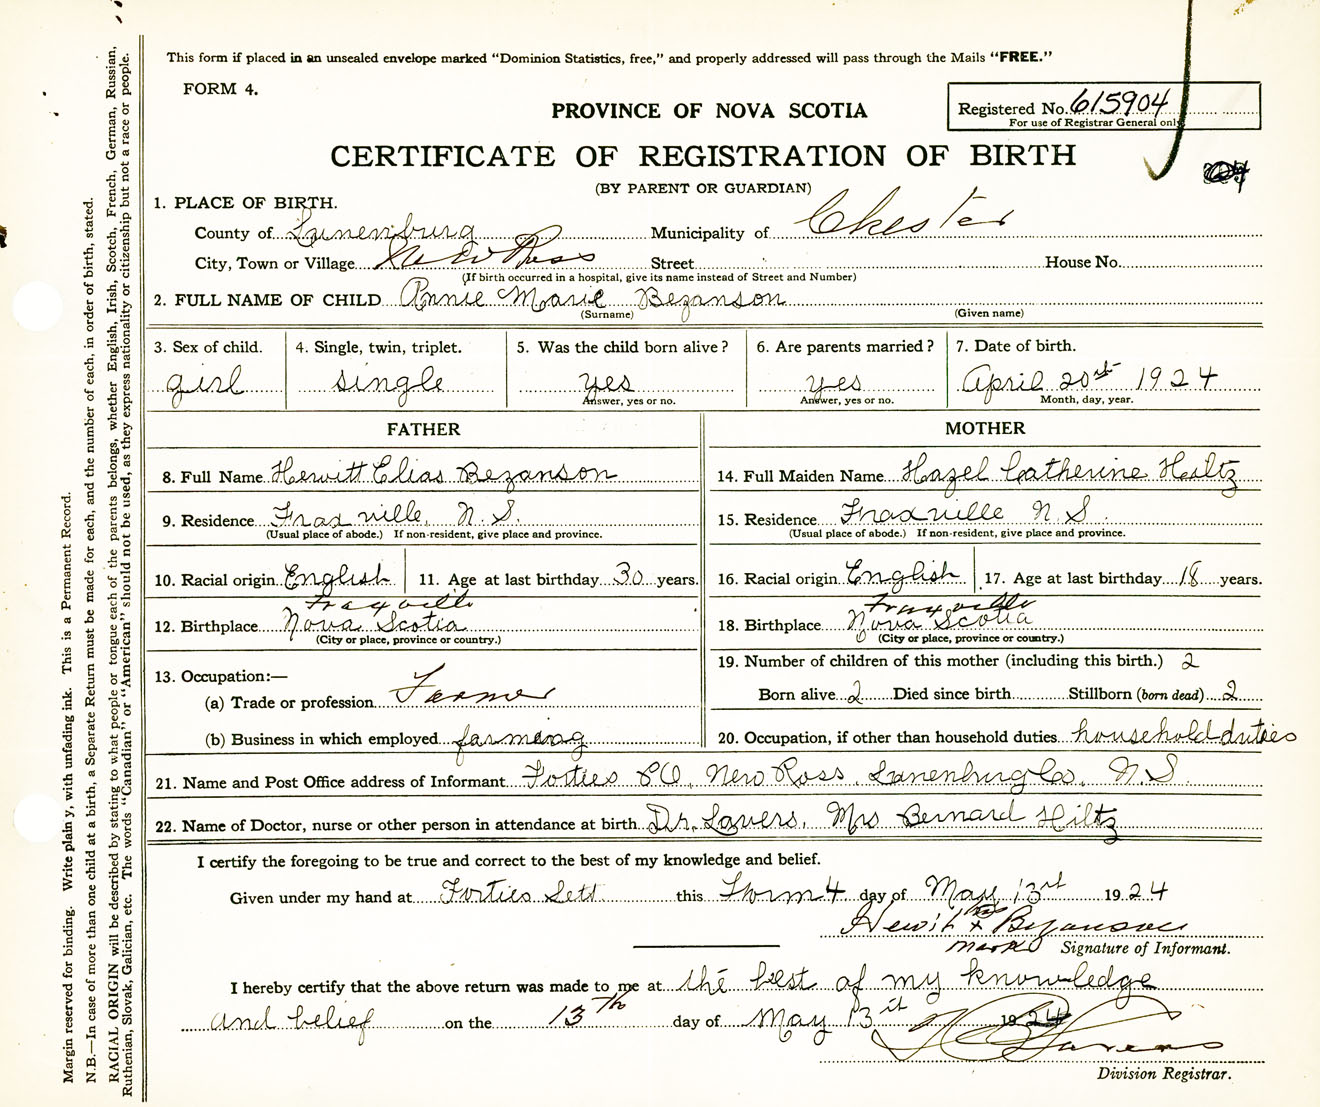 This form if placed in an unsealed envelope marked "Dominion Statistics, free," and properly addressed will pass through the Mails "FREE."
FORM 4.
Registered No. 615904
For use of Registrar General only
PROVINCE OF NOVA SCOTIA
CERTIFICATE OF REGISTRATION OF BIRTH
(BY PARENT OR GUARDIAN)
1. PLACE OF BIRTH.
County of Lunenburg Municipality of Chester
City, Town or Village New Ross Street House No.
(If birth occurred in a hospital, give its name instead of Street and Number)
2. FULL NAME OF CHILD Annie Marie Bezanson
(Surname) (Given name)
3. Sex of child. 4. Single, twin, triplet. 5. Was the child born alive? 6. Are parents married? 7. Date of birth.
girl single yes yes April 20st 1924
Answer, yes or no. Answer, yes or no. Month, day, year.
FATHER
8. Full Name Hewitt Elias Bezanson
9. Residence Fraxville, N.S.
(Usual place of abode.) If non-resident, give place and province.
10. Racial origin English 11. Age at last birthday 30 years.
Fraxville
12. Birthplace Nova Scotia
(City or place, province or country.)
13. Occupation:—
(a) Trade or profession Farmer
(b) Business in which employed farming
MOTHER
14. Full Maiden Name Hazel Catherine Hiltz
15. Residence Fraxville N.S.
(Usual place of abode.) If non-resident, give place and province.
16. Racial origin English 17. Age at last birthday 18 years.
Fraxville
18. Birthplace Nova Scotia
(City or place, province or country.)
19. Number of children of this mother (including this birth.) 2
Born alive 2 Died since birth Stillborn (born dead) 2
20. Occupation, if other than household duties household duties
21. Name and Post Office address of Informant Forties P.O. New Ross, Lunenburg Co. N.S.
22. Name of Doctor, nurse or other person in attendance at birth Dr. Lavers, Mrs Bernard Hiltz
I certify the foregoing to be true and correct to the best of my knowledge and belief.
Given under my hand at Forties Sett this Form 4 day of May 13rd 1924
Hewitt his x Bezanson
mark Signature of Informant.
I hereby certify that the above return was made to me at the best of my knowledge
and belief on the 13th day of May 13 1924
Lavers
Division Registrar.
Margin reserved for binding. Write plainly, with unfading ink. This is a Permanent Record.
N.B.—In case of more than one child at a birth, a Separate Return must be made for each, and the number of each, in order of birth, stated.
RACIAL ORIGIN will be described by stating to what people or tongue each of the parents belongs, whether English, Irish, Scotch, French, German, Russian,
Ruthenian, Slovak, Galician, etc. The words "Canadian" or "American" should not be used, as they express nationality or citizenship but not a race or people.